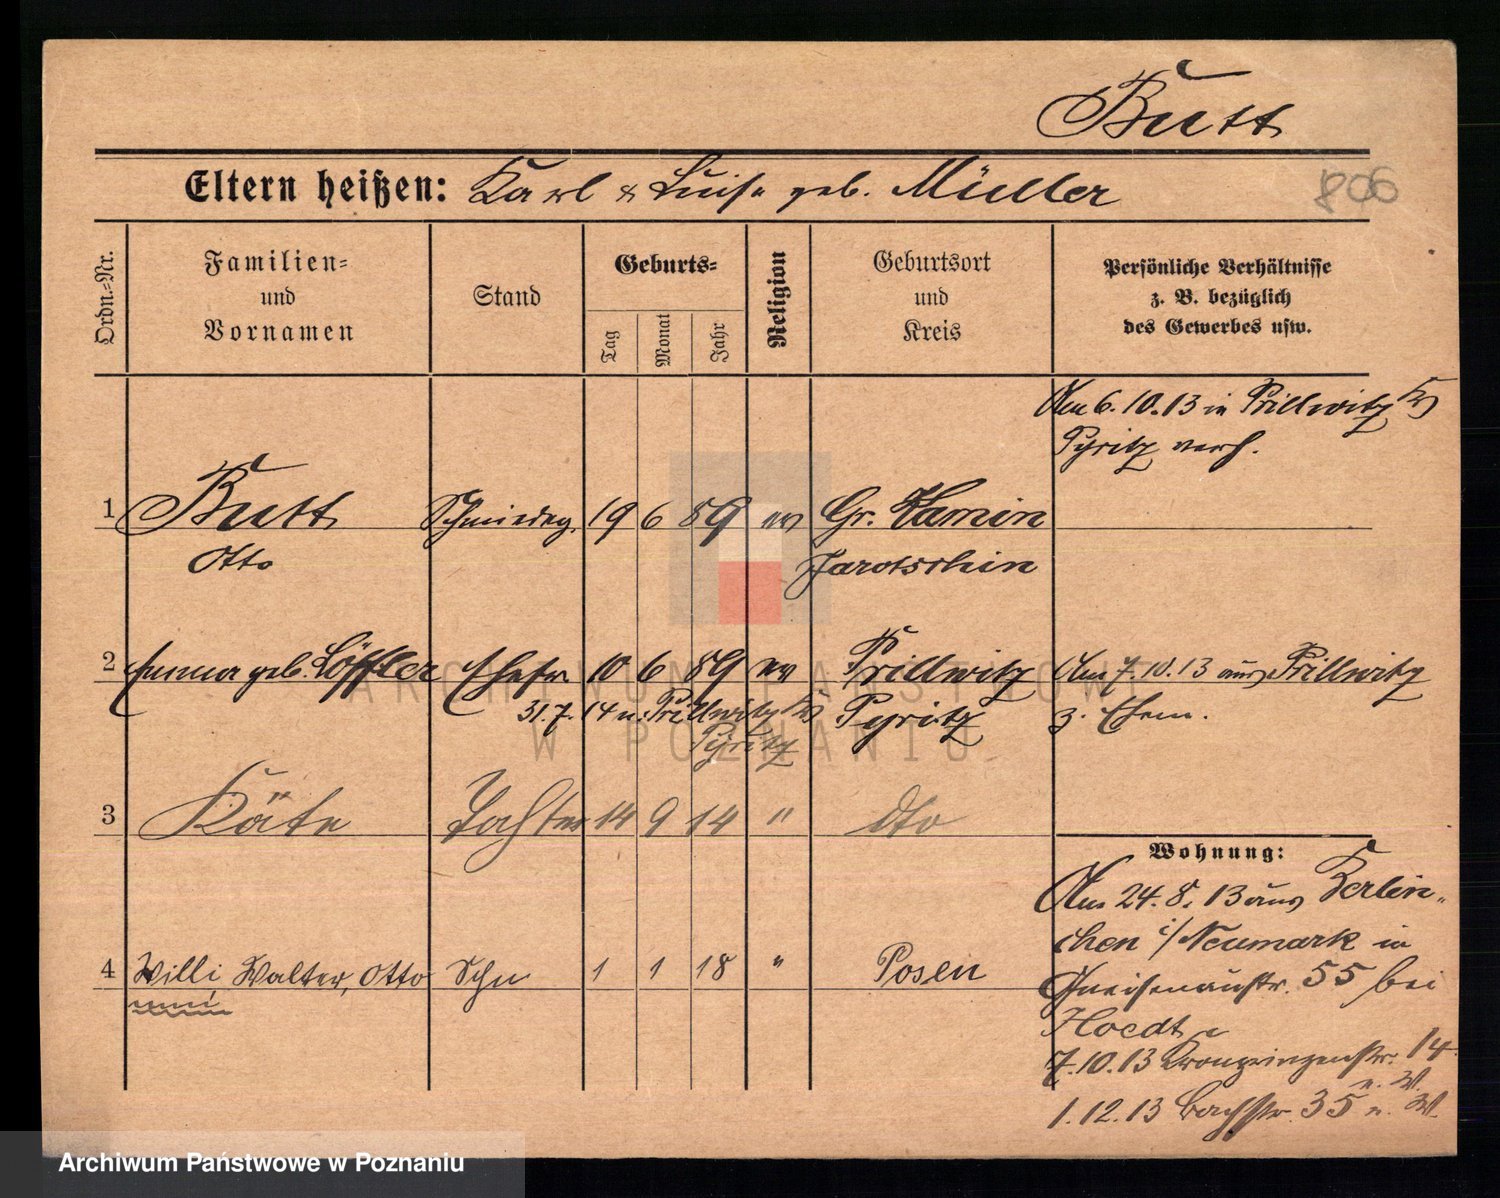 Butt
Eltern heißen: Karl & Luise geb. Müller
806
Ordn.-Nr.
Familien-
und
Vornamen
Stand
Geburts-
Tag
Monat
Jahr
Religion
Geburtsort
und
Kreis
Persönliche Verhältnisse
z. B. bezüglich
des Gewerbes usw.
Am 6.10.13 in Prillwitz Kr
Pyritz verh.
1 Butt Schmiedeg. 19 6 89 ev Gr. Kamin
Otto Jarotschin
2 Emma geb. Löffler Ehefr 10 6 89 ev Prillwitz Am 7.10.13 aus Prillwitz
31.7.14 n. Prillwitz Kr Pyritz z. Ehem.
Pyritz
3 Käte Tochter 14 9 14 " dto
Wohnung:
Am 24.8.13 aus Berlin-
chen i/Neumark in
4 Willi, Walter, Otto Sohn 1 1 18 " Posen
Gneisenaustr. 55 bei
Hoedt
7.10.13 Kronprinzenstr. 14
n. W.
1.12.13 Bachstr. 35 n. W.
ARCHIWUM PAŃSTWOWE
W POZNANIU
Archiwum Państwowe w Poznaniu